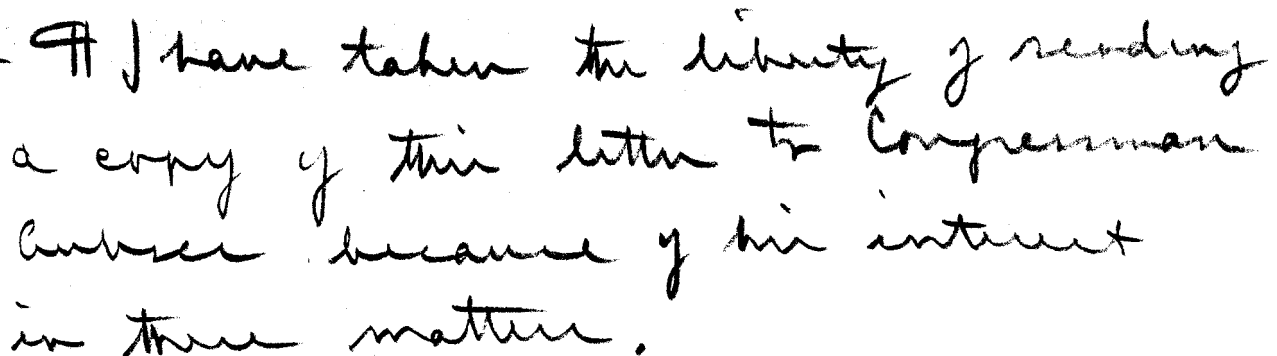 ¶ I have taken the liberty of sending
a copy of this letter to Congressman
Gubser because of his interest
in these matters.